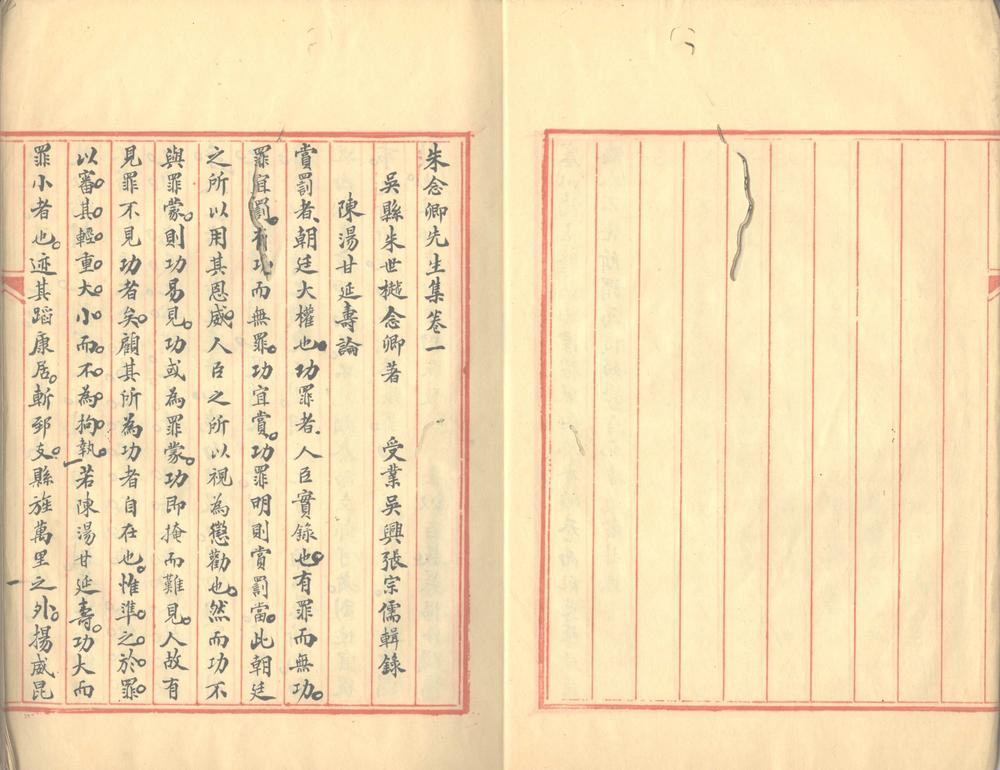 朱念卿先生集卷一
吳縣朱世樾念卿著　受業吳興張宗儒輯錄
陳湯甘延壽論
賞罰者、朝廷大權也。功罪者、人臣實錄也。有罪而無功。
罪宜罰。有功而無罪。功宜賞。功罪明則賞罰當。此朝廷
之所以用其恩威。人臣之所以視為懲勸也。然而功不
與罪蒙。則功易見。功或為罪蒙。功即掩而難見。人故有
見罪不見功者矣。顧其所為功者自在也。惟準之於罪
以審其輕重大小而不為拘執。若陳湯甘延壽。功大而
罪小者也。迹其蹈康居。斬郅支。縣旌萬里之外。揚威昆
一